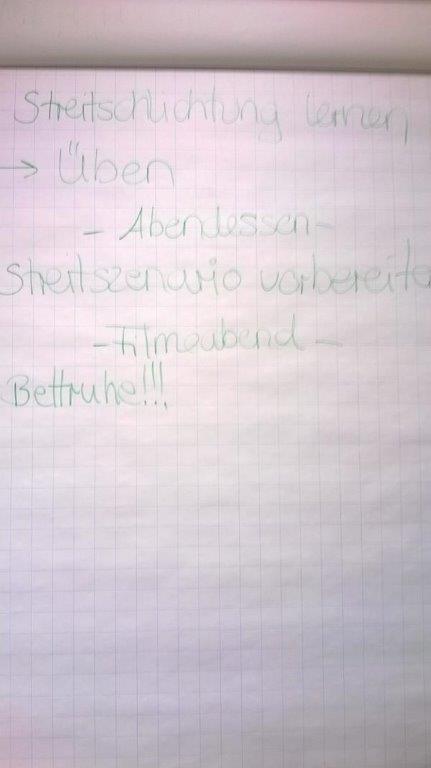 Streitschlichtung lernen
→ Üben
- Abendessen -
Streitszenario vorbereite
- Filmeabend -
Bettruhe!!!